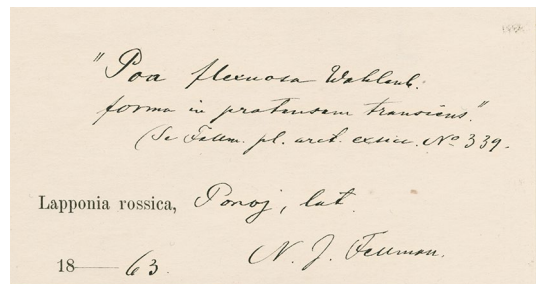 "Poa flexuosa Wahlenb:
forma in pratensem transiens."
(Se Fellm. pl. arct. exsicc. No 339.
Lapponia rossica, Ponoj, lat.
1863.
N. J. Fellman.